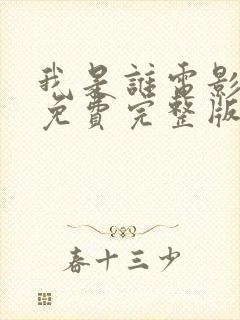 我是誰電影
免費完整版
春十三少